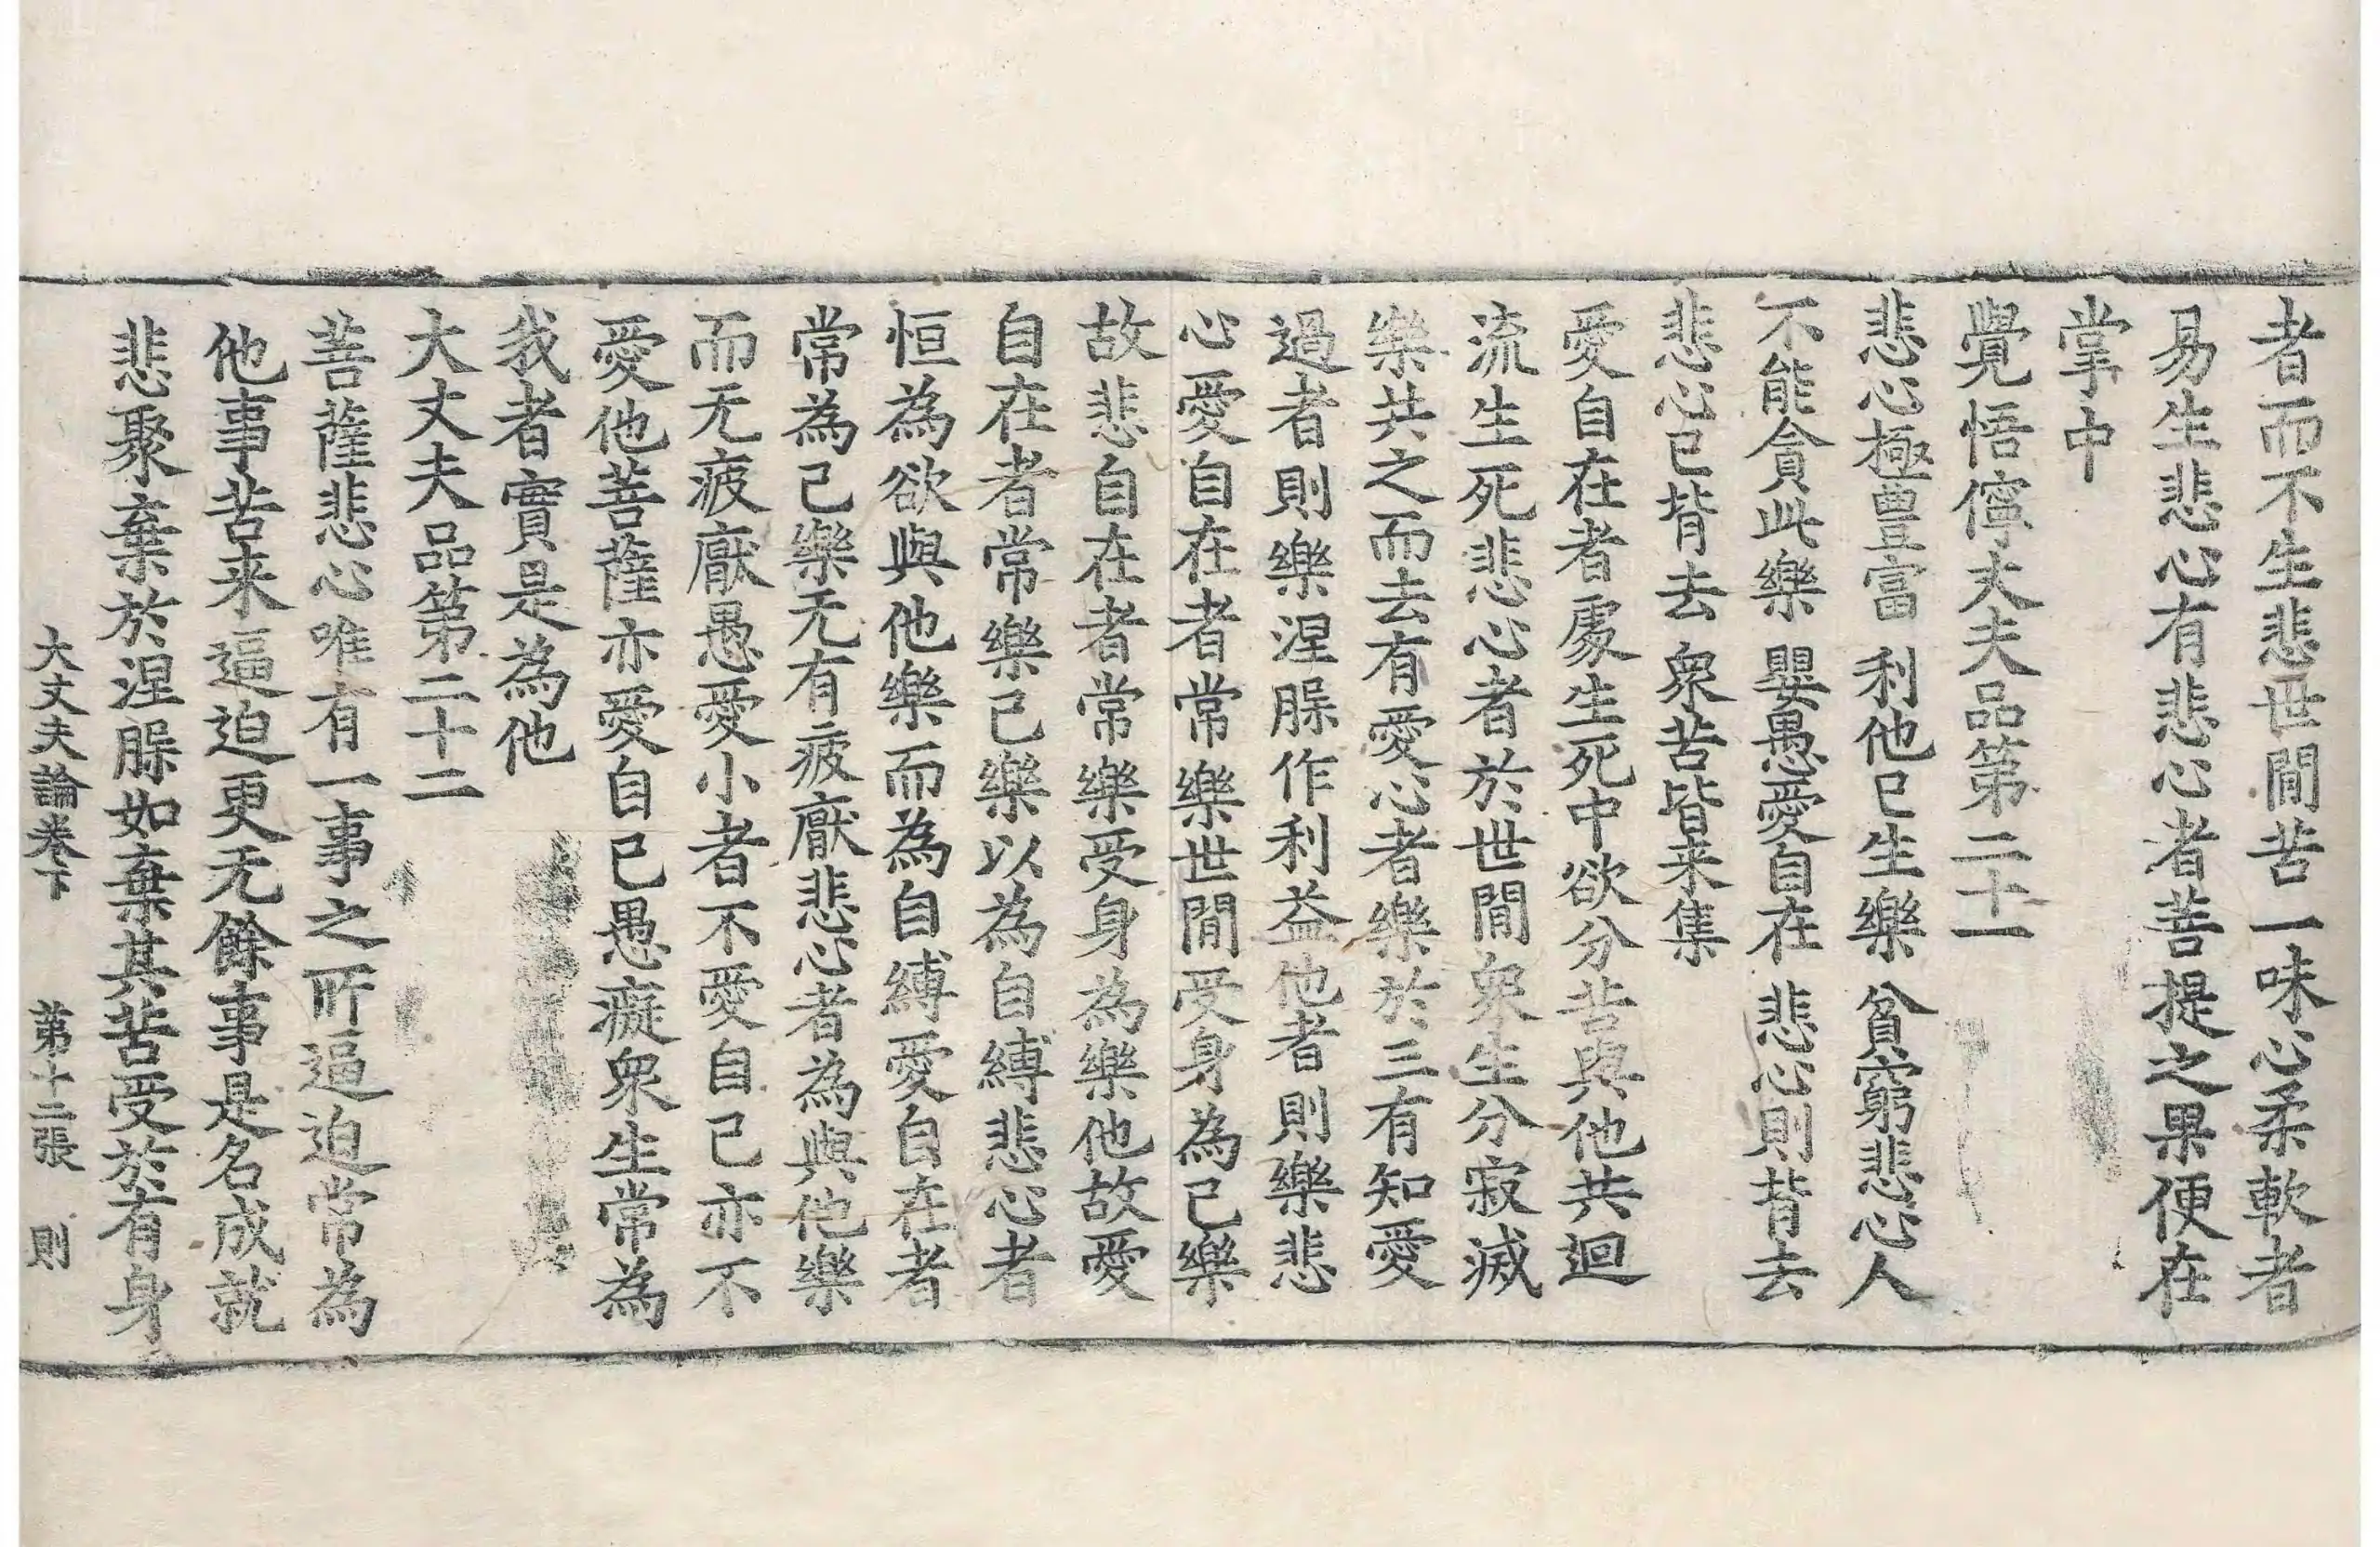 者而不生悲世間苦一味心柔軟者
易生悲心有悲心者菩提之果便在
掌中
覺悟儜丈夫品第二十一
悲心極豊富 利他已生樂 貧窮悲心人
不能貪此樂 嬰愚愛自在 悲心則背去
悲心已背去 衆苦皆来集
愛自在者處生死中欲分苦與他共迴
流生死悲心者於世間衆生分寂滅
樂共之而去有愛心者樂於三有知愛
過者則樂涅槃作利益他者則樂悲
心愛自在者常樂世間受身為己樂
故悲自在者常樂受身為樂他故愛
自在者常樂己樂以為自縛悲心者
恒為欲與他樂而為自縛愛自在者
常為己樂无有疲厭悲心者為與他樂
而无疲厭愚愛小者不愛自己亦不
愛他菩薩亦愛自己愚癡衆生常為
我者實是為他
大丈夫品第二十二
菩薩悲心唯有一事之所逼迫常為
他事苦来逼迫更无餘事是名成就
悲聚棄於涅槃如棄其苦受於有身
大丈夫論卷下 第十二張 則